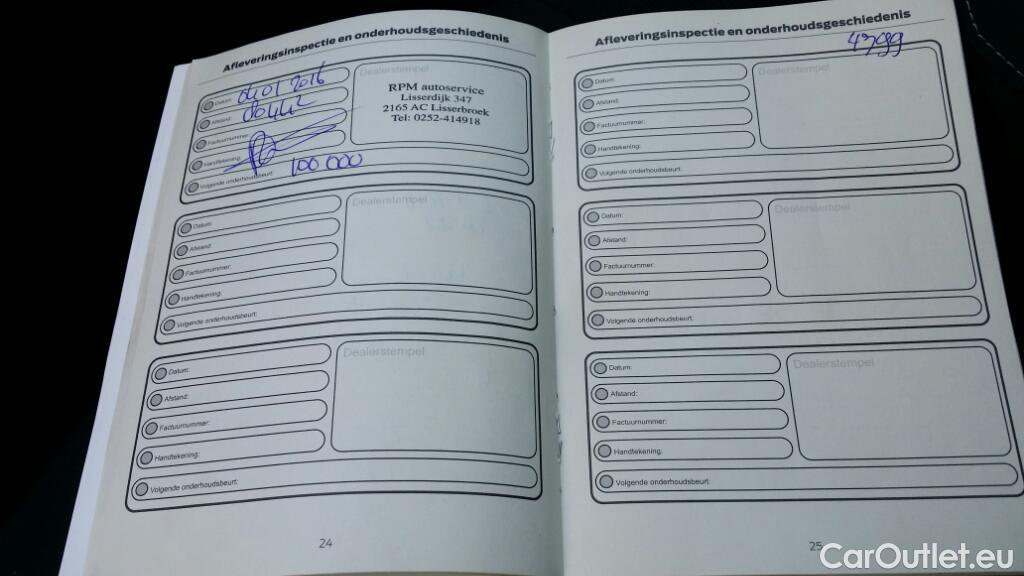 Afleveringsinspectie en onderhoudsgeschiedenis
Datum: 04 01 2016
Afstand: 80442
Factuurnummer:
Handtekening:
Volgende onderhoudsbeurt: 100 000
Dealerstempel
RPM autoservice
Lisserdijk 347
2165 AC Lisserbroek
Tel: 0252-414918
Datum:
Afstand:
Factuurnummer:
Handtekening:
Volgende onderhoudsbeurt:
Dealerstempel
Datum:
Afstand:
Factuurnummer:
Handtekening:
Volgende onderhoudsbeurt:
Dealerstempel
24
Afleveringsinspectie en onderhoudsgeschiedenis
Datum:
Afstand:
Factuurnummer:
Handtekening:
Volgende onderhoudsbeurt:
Dealerstempel
Datum:
Afstand:
Factuurnummer:
Handtekening:
Volgende onderhoudsbeurt:
Dealerstempel
Datum:
Afstand:
Factuurnummer:
Handtekening:
Volgende onderhoudsbeurt:
Dealerstempel
25
CarOutlet.eu